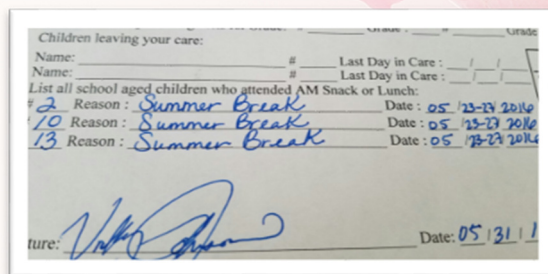 Grade
Children leaving your care:
Name: # Last Day in Care : / /
Name: # Last Day in Care : / /
List all school aged children who attended AM Snack or Lunch:
# 2 Reason : Summer Break Date : 05 /23-27 2016
10 Reason : Summer Break Date : 05 /23-27 2016
13 Reason : Summer Break Date : 05 /23-27 2016
ture: Date: 05 / 31 /